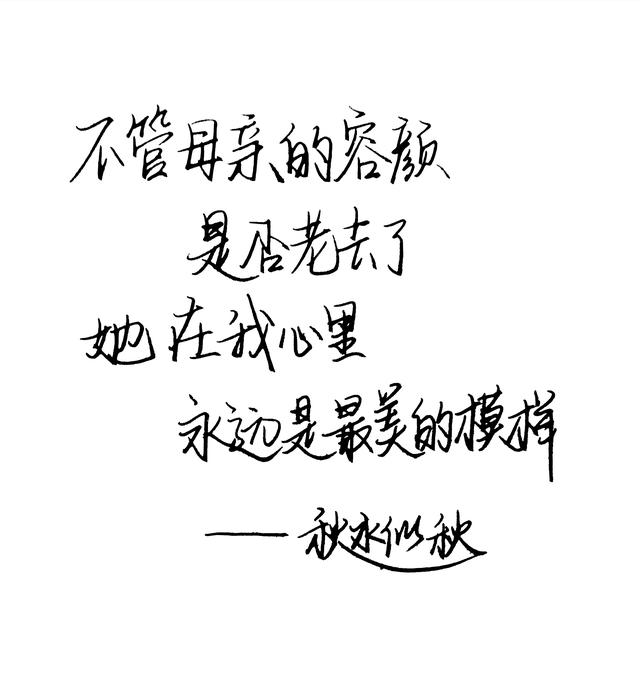 不管母亲的容颜
是否老去了
她在我心里
永远是最美的模样
——秋水似秋